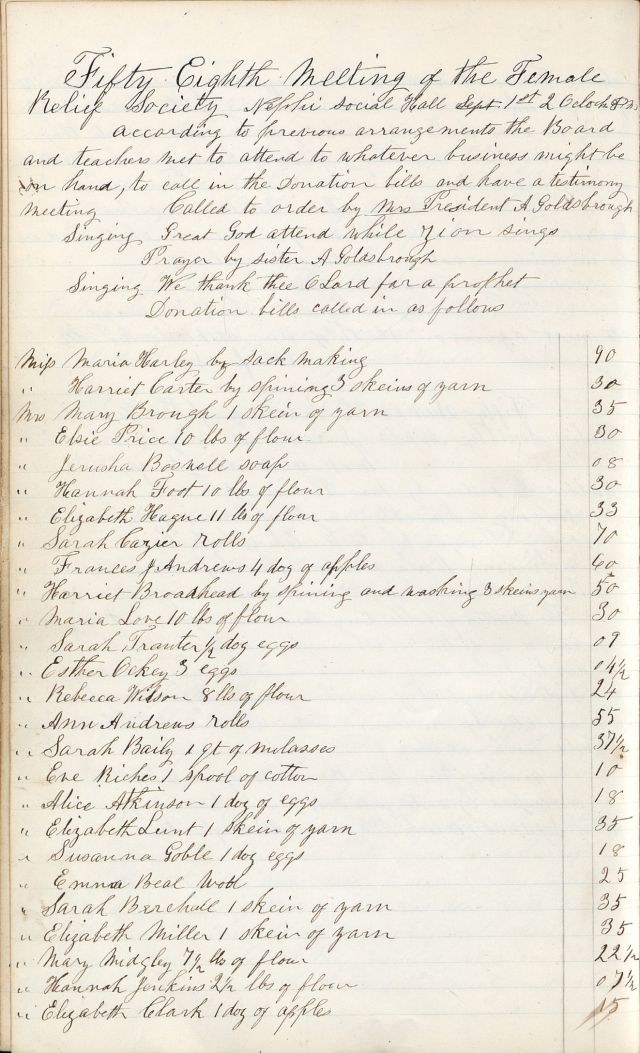 Fifty Eighth Meeting of the Female
Relief Society Nephi Social Hall Sept. 1st 2 Oclock P.M.
according to previous arrangements the Board
and teachers met to attend to whatever business might be
on hand, to call in the Donation bills and have a testimony
meeting Called to order by Mrs President A Goldsbrough
Singing Great God attend while Zion sings
Prayer by sister A Goldsbrough
Singing We thank thee O Lord for a prophet
Donation bills called in as follows
Miss Maria Harley by sack making 90
" Harriet Carter by spining 3 skeins of yarn 30
Mrs Mary Brough 1 skein of yarn 35
" Elsie Price 10 lbs of flour 30
" Jerusha Boswell soap 08
" Hannah Foot 10 lbs of flour 30
" Elizabeth Hague 11 lbs of flour 33
" Sarah Cazier rolls 70
" Frances J Andrews 4 doz of apples 60
" Harriet Broadhead by spining and washing 3 skeins yarn 50
" Maria Love 10 lbs of flour 30
" Sarah Tranter 1/2 doz eggs 09
" Esther Ockey 3 eggs 04 1/2
" Rebecca Wilson 8 lbs of flour 24
" Ann Andrews rolls 55
" Sarah Baily 1 qt of molasses 37 1/2
" Eve Riches 1 spool of cotton 10
" Alice Atkinson 1 doz of eggs 18
" Elizabeth Lunt 1 skein of yarn 35
" Susanna Goble 1 doz eggs 18
" Emma Beal wool 25
" Sarah Berchall 1 skein of yarn 35
" Elizabeth Miller 1 skein of yarn 35
" Mary Midgley 7 1/2 lbs of flour 22 1/2
" Hannah Jenkins 2 1/2 lbs of flour 07 1/2
" Elizabeth Clark 1 doz of apples 15